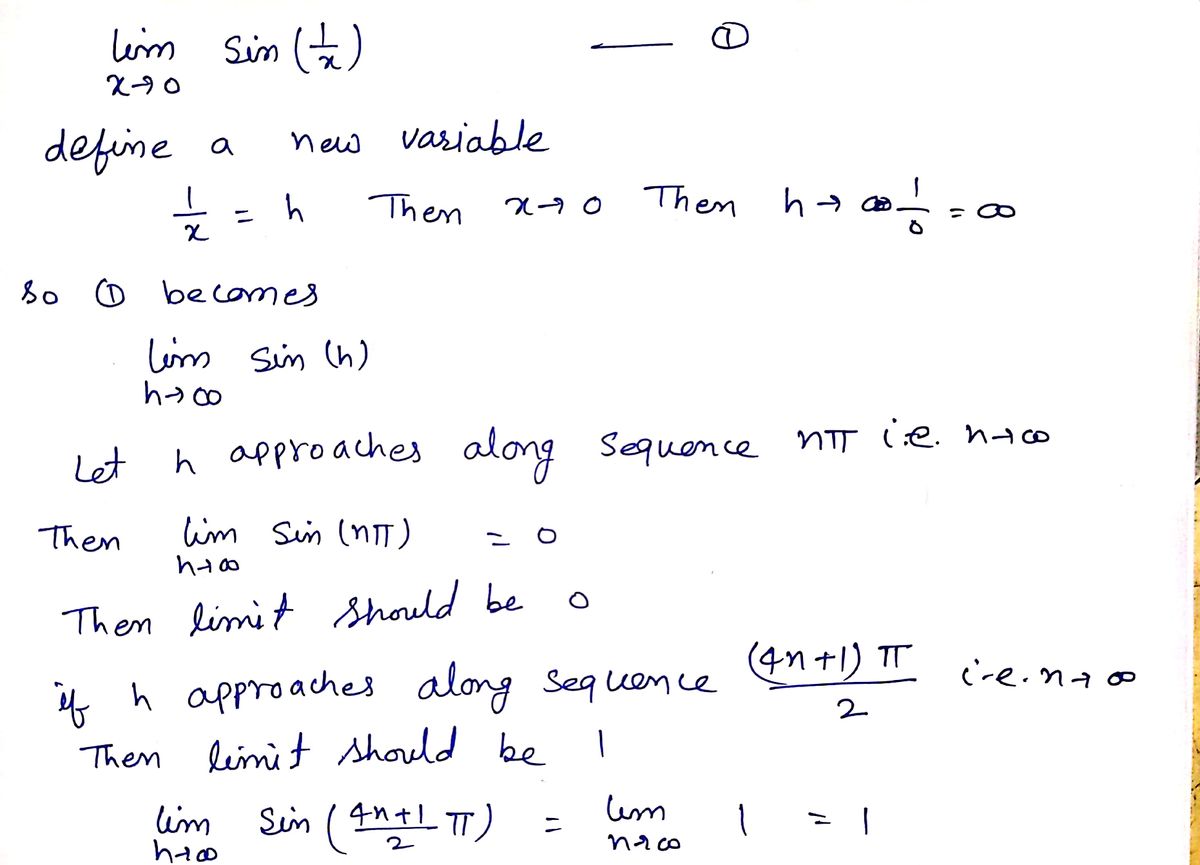 lim sin (1/x) — ①
x→0
define a new variable
1/x = h Then x→0 Then h→ 1/0 = ∞
so ① becomes
lim sin (h)
h→∞
Let h approaches along sequence nπ i.e. n→∞
Then lim sin (nπ) = 0
h→∞
Then limit should be 0
if h approaches along sequence (4n+1)π/2 i-e. n→∞
Then limit should be 1
lim sin (4n+1/2 π) = lim 1 = 1
h→∞ n→∞